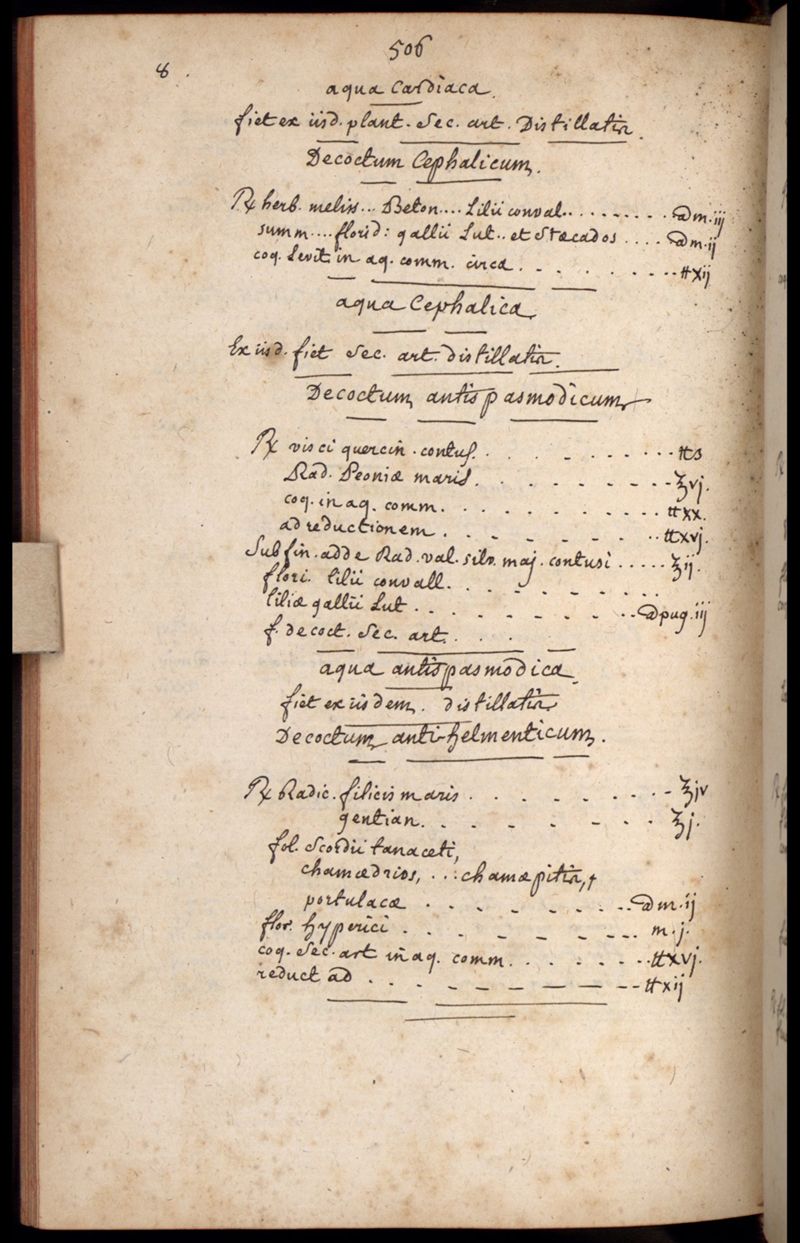 506
8.
aqua Cardiaca.
fiet ex iisd. plant. Sec. art. Distillatis.
Decoctum Cephalicum.
℞ herb. meliss... Beton.... Lilii conval......... @ m. iij
summ.... florid: gallii Lut.. et Stæcados .... @ m. ij
coq. Levit in aq. comm. circa . . . . . . . . ℔xij
aqua Cephalica
Ex iisd. fiet Sec. art. distillatis.
Decoctum antispasmodicum
℞ visci quercin. contus. . . . . . . . . ℔s
Rad. Peoniæ maris . . . . . . . . ℥vj.
coq. in aq. comm. . . . . . . . . . ℔xx.
ad reductionem . . . . . . . . ℔xvj.
Sub fin. adde Rad. val. silv. maj. contusi . . . . . ℥ij.
flori. lilii convall. . . . . . . . . .
tiliæ gallii Lut . . . . . . . . . @ pug. iij
f. decoct. Sec. art. . . .
aqua antispasmodica.
fiet ex iisdem. distillatis
Decoctum anti-helmenticum.
℞ Radic. filicis maris . . . . . . . . - ℥jv
gentian. . . . . . . . . ℥j.
fol. Scordii tanaceti,
chamædrios, ... chamæpitis, †
portulacæ . . . . . . . . . @ m. ij
flor. hyperici . . . . . . . . . m. j.
coq. Sec. art in aq. comm. . . . . . . . ℔xvj.
reduct ad . . . - - - - - - - ℔xij